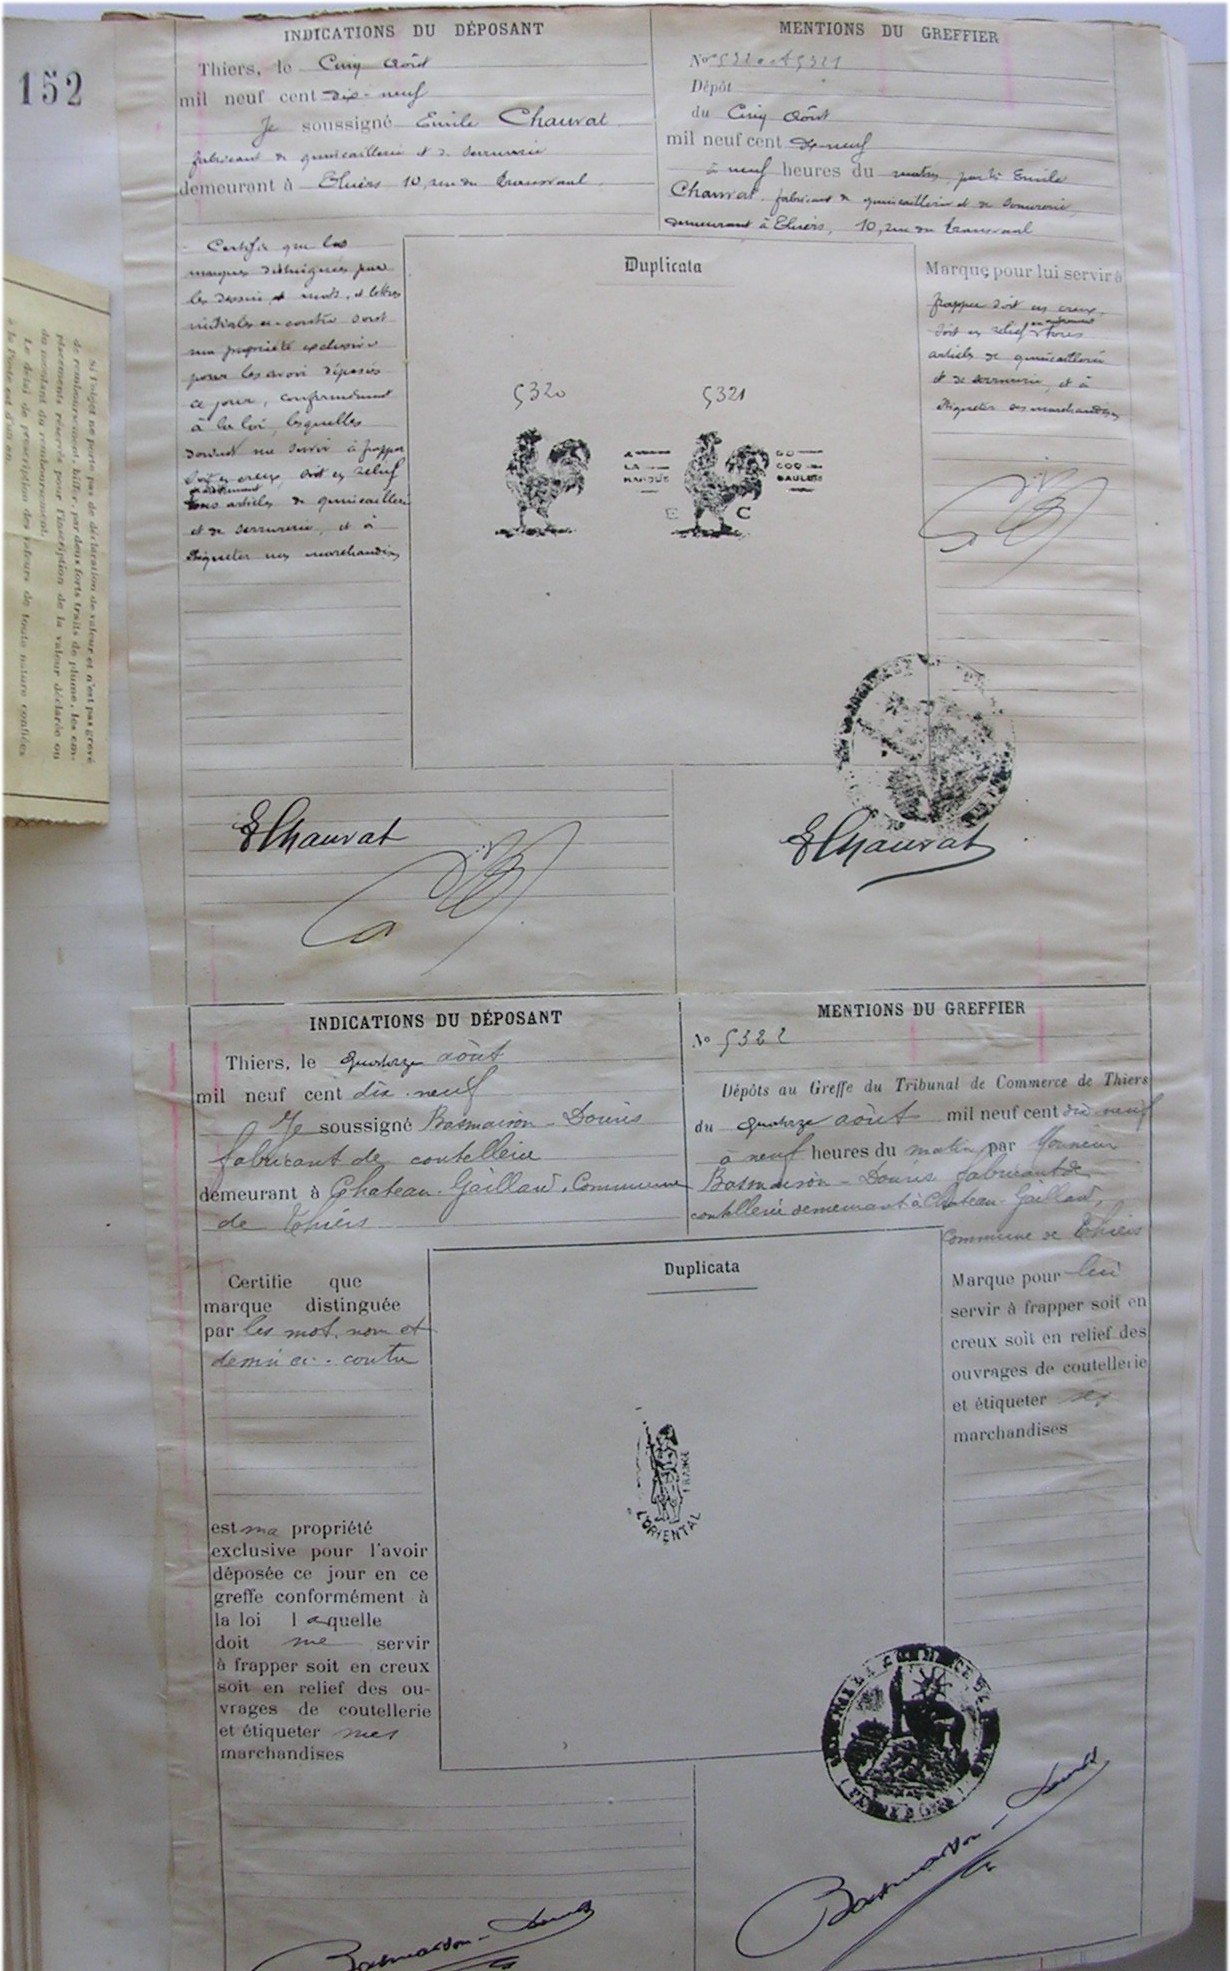 152
INDICATIONS DU DÉPOSANT
Thiers, le Cinq Août
mil neuf cent dix-neuf
Je soussigné Emile Chauvat
fabricant de quincaillerie et de serrurerie
demeurant à Thiers 10, rue du Transvaal,
MENTIONS DU GREFFIER
Nos 5320 et 5321
Dépôt
du Cinq Août
mil neuf cent dix-neuf
à neuf heures du matin, par Mr Emile
Chauvat, fabricant de quincaillerie et de serrurerie,
demeurant à Thiers, 10, rue du Transvaal
Certifie que les
marques distinguées par
les dessin et mots, et lettres
initiales ci-contre sont
ma propriété exclusive
pour les avoir déposées
ce jour, conformément
à la loi, lesquelles
doivent me servir à frapper
soit en creux, soit en relief
tous articles de quincaillerie
et de serrurerie, et à
étiqueter mes marchandises
Duplicata
5320
5321
A
LA
MARQUE
DU
COQ
GAULOIS
E C
Marque pour lui servir à
frapper soit en creux,
soit en relief tous
articles de quincaillerie
et de serrurerie, et à
étiqueter ses marchandises
EChauvat
EChauvat
Si l'objet ne porte pas de déclaration de valeur et n'est pas grevé
de remboursement, biffer, par deux forts traits de plume, les em-
placements réservés pour l'inscription de la valeur déclarée ou
du montant du remboursement.
Le délai de prescription des valeurs de toute nature confiées
à la Poste est d'un an
INDICATIONS DU DÉPOSANT
Thiers, le quatorze août
mil neuf cent dix neuf
Je soussigné Basmaison-Douris
fabricant de coutellerie
demeurant à Chateau-Gaillard, Commune
de Thiers
MENTIONS DU GREFFIER
No 5322
Dépôts au Greffe du Tribunal de Commerce de Thiers
du quatorze août mil neuf cent dix neuf
à neuf heures du matin par Monsieur
Basmaison-Douris fabricant de
coutellerie demeurant à Chateau-Gaillard,
Commune de Thiers
Certifie que
marque distinguée
par les mot, nom et
dessin ci-contre
est ma propriété
exclusive pour l'avoir
déposée ce jour en ce
greffe conformément à
la loi laquelle
doit me servir
à frapper soit en creux
soit en relief des ou-
vrages de coutellerie
et étiqueter mes
marchandises
Duplicata
L'ORIENTAL
Marque pour lui
servir à frapper soit en
creux soit en relief des
ouvrages de coutellerie
et étiqueter ses
marchandises
Basmaison-Douris
Basmaison-Douris